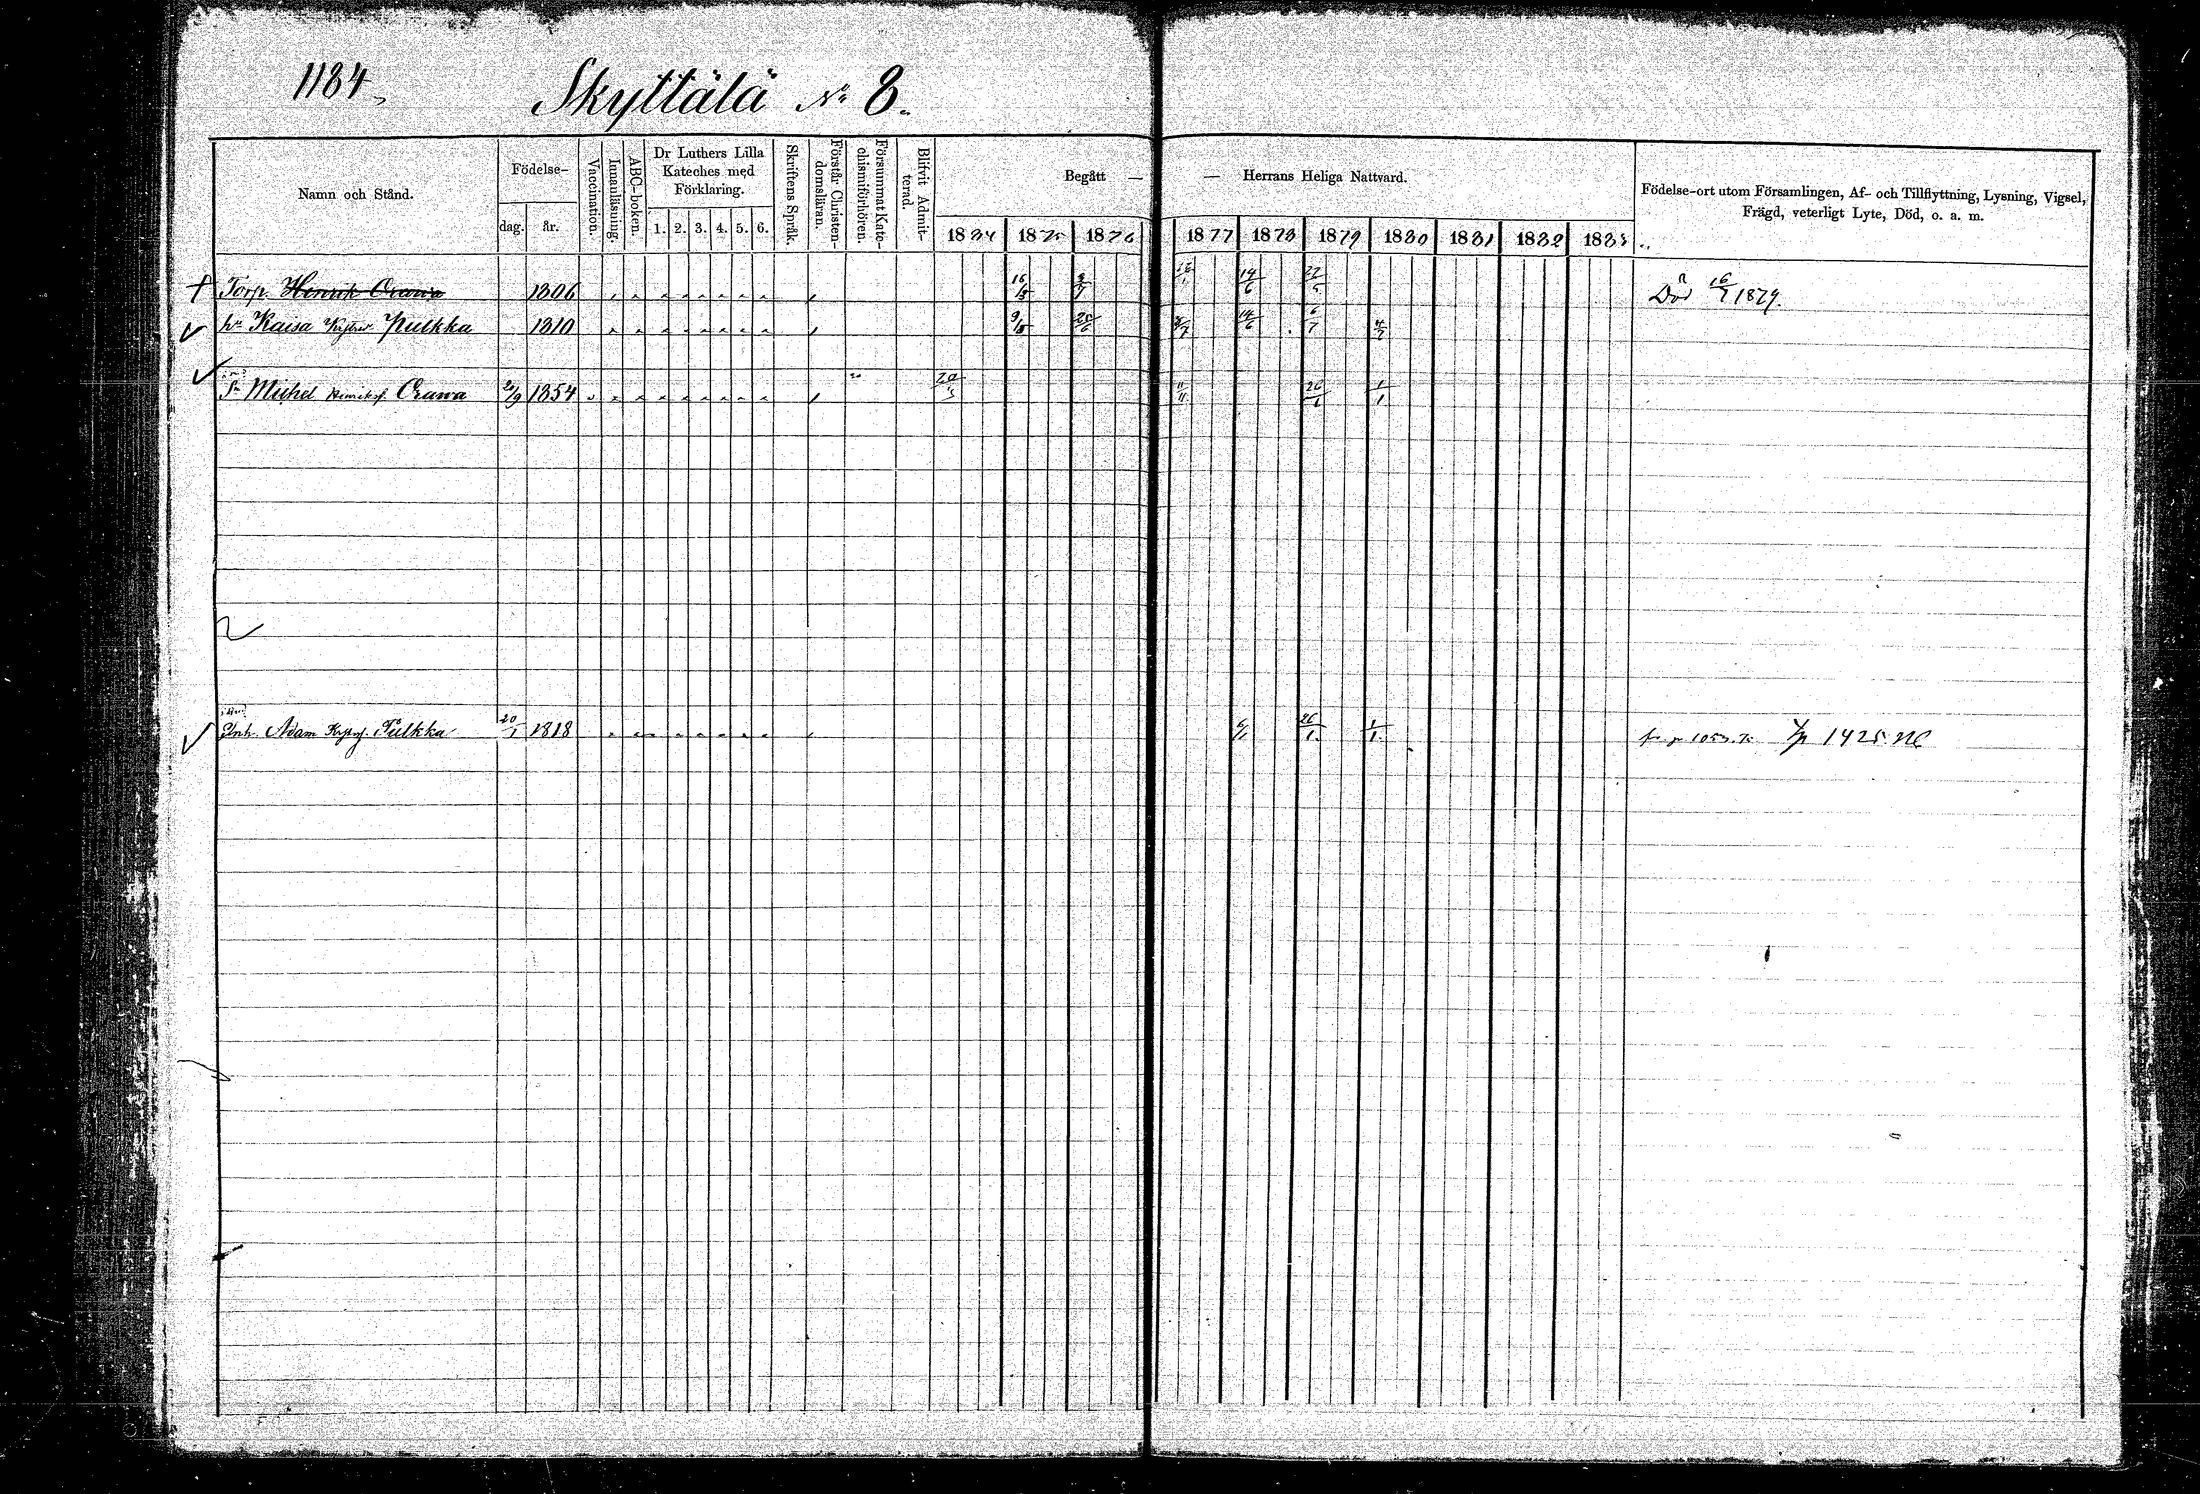 1184
Skyttälä No 8.
Namn och Stånd.
Födelse-
dag. år.
Vaccination.
Innanläsning.
ABC-boken.
Dr Luthers Lilla
Kateches med
Förklaring.
1. 2. 3. 4. 5. 6.
Skriftens Språk.
Förstår Christen-
domsläran.
Försummat Kate-
chismiförhören.
Blifvit Admit-
terad.
Begått — — Herrans Heliga Nattvard.
1874 1875 1876 1877 1878 1879 1880 1881 1882 1883
Födelse-ort utom Församlingen, Af- och Tillflyttning, Lysning, Vigsel,
Frägd, veterligt Lyte, Död, o. a. m.
Torp. Henrik Orawa 1806 16/ 14/6 Död 16/7 1879.
hu Kaisa Pulkka 1810 9/ 25/6 14/6 6/7 4/7
Sn Michel Henrikss. Orawa 20/9 1854 11/11 26/1 1/1
Enk. Adam Pulkka 20/1 1818 6/1 26/1 1/1 1425